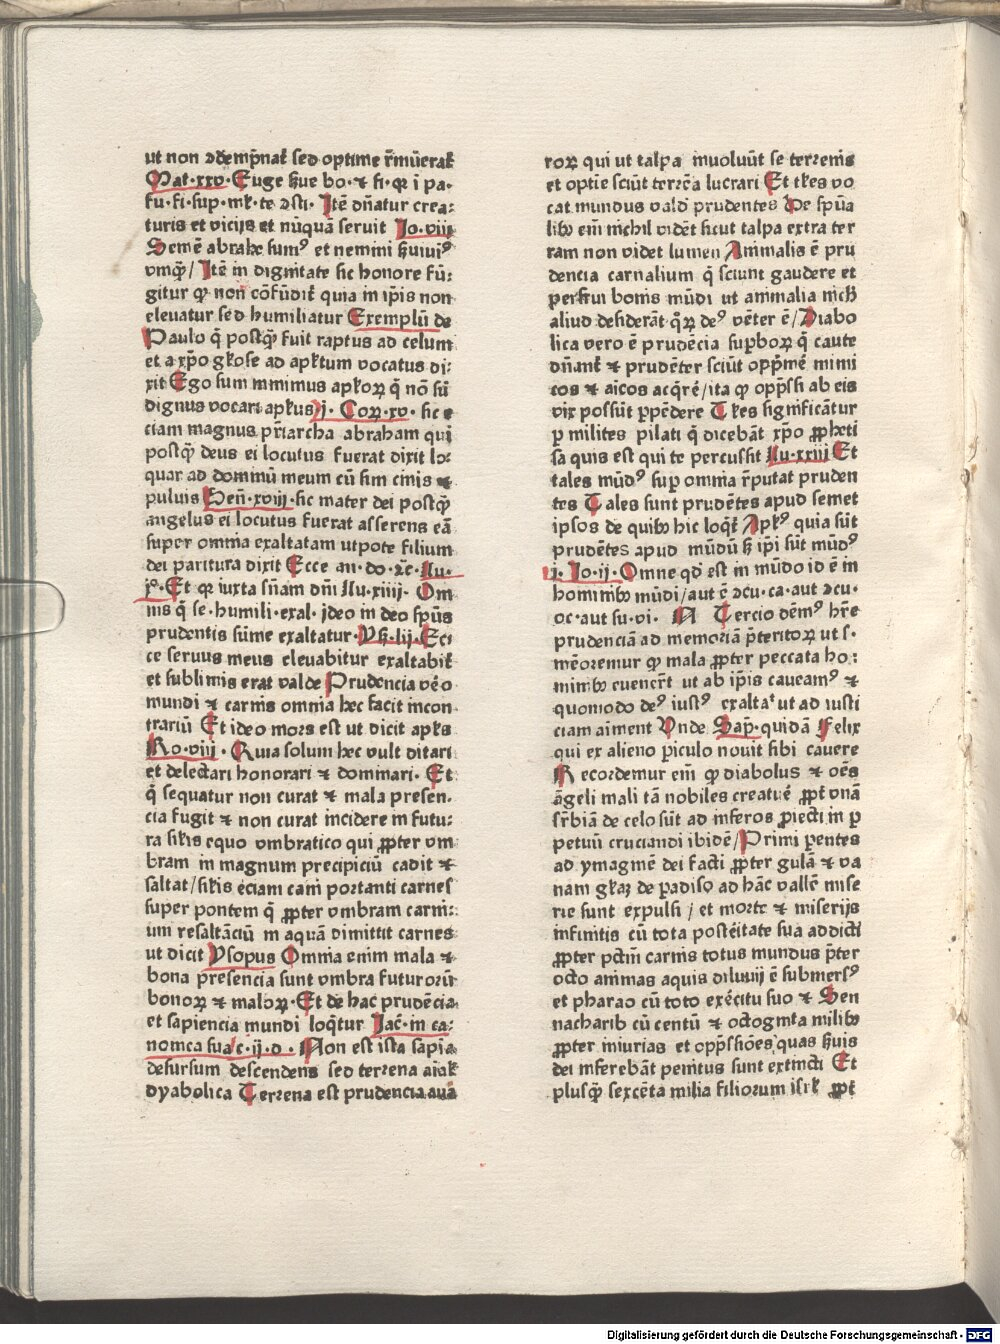 ut non ↄdempnat̄ sed optime r̄mūerat̄
Mat·xxv·Euge s̄ue bo·⁊ fi·qꝛ ī pa·
fu·fi·sup·ml̄·te ↄsti·Itē dn̄atur crea:
turis et vicijs et nūquā seruit Io·viij
Semē abrahe sumꝰ et nemini s̄uiuiꝰ
vmqꝫ/Itē in dignitate sic honore fū:
gitur ꝙ non cōfūdit̄ quia in ip̄is non
eleuatur sed humiliatur Exemplū de
Paulo q̄ postqꝫ fuit raptus ad celum
et a xp̄o gl̄ose ad apl̄tum vocatus di:
xit Ego sum minimus apl̄oꝝ q̄ nō sū
dignus vocari apl̄us·j·Coꝝ·xv·sic e
ciam magnus pr̄iarcha abraham qui
postqꝫ deus ei locutus fuerat dixit lo:
quar ad dominū meum cū sim cinis ⁊
puluis Gen̄·xviij·sic mater dei postqꝫ
angelus ei locutus fuerat asserens eā
super omnia exaltatam utpote filium
dei paritura dixit Ecce an·do·⁊c̄·Lu·
iꝰ·Et qꝛ iuxta sn̄am dn̄i Lu·xiiij·Om
nis q̄ se·humili·exal·ideo in deo sp̄us
prudentis sūme exaltatur·Ys̄·lij·Ec
ce seruus meus eleuabitur exaltabit̄
et sublimis erat valde Prudencia vēo
mundi ⁊ carnis omnia hec facit incon
trariū Et ideo mors est ut dicit apl̄s
Ro·viij·Quia solum hec vult ditari
et delectari honorari ⁊ dominari·Et
q̄ sequatur non curat ⁊ mala presen·
cia fugit ⁊ non curat incidere in futu:
ra sil̄is equo vmbratico qui ꝓpter vm
bram in magnum precipiciū cadit ⁊
saltat/sil̄is eciam cani portanti carnes
super pontem q̄ ꝓpter vmbram carni:
um resaltāciū in aquā dimittit carnes
ut dicit Ysopus Omnia enim mala ⁊
bona presencia sunt vmbra futurorū
bonoꝝ ⁊ maloꝝ·Et de hac prudēcia
et sapiencia mundi loqꝉtur Jac̄·in ca:
nonica sua c·ij·d·Non est ista sapia
desursum descendens sed terrena aīal̄
dyabolica Terrena est prudencia aua
roꝝ qui ut talpa inuoluūt se terrenis
et optie sciūt terrēa lucrari Et tl̄es vo
cat mundus valdꝰ prudentes De sp̄ua
libꝫ eīm nichil vidēt sicut talpa extra ter
ram non videt lumen Animalis ē pru
dencia carnalium q̄ sciunt gaudere et
perfrui bonis mūdi ut animalia nich̄
aliud desiderāt qꝝ deꝰ vēter ē/Diabo
lica vero ē prudēcia supboꝝ q̄ caute
dn̄ant̄ ⁊ prudēter sciūt opp̄mē inimi
cos ⁊ aīcos acq̄rē/ita ꝙ opp̄ssi ab eis
vix possūt ꝑpēdere Tl̄es significātur
ꝑ milites pilati q̄ dicebāt xp̄o ꝓpheti
sa quis est qui te percussit Lu·xxiij Et
tales mūdꝰ sup omnia r̄putat pruden
tes Tales sunt prudētes apud semet
ipsos de quibꝫ hic loqꝉt̄ Apl̄ꝰ quia sūt
prudētes apud mūdū s̄ ip̄i sūt mūdꝰ
j·Io·ij·Omne qd̄ est in mūdo id ē in
hominibꝫ mūdi/aut ē ↄcu·ca·aut ↄcu·
oc·aut su·vi·N Tercio dēmꝰ hr̄e
prudenciā ad memoriā p̄teritoꝝ ut s·
mēoremur ꝙ mala ꝓpter peccata ho:
minibꝫ euener̄t ut ab ip̄is caueamꝰ ⁊
quomodo deꝰ iustꝰ exaltat ut ad iusti
ciam aīment Vnde Sap̄·quidā Felix
qui ex alieno ꝑiculo nouit sibi cauere
Recordemur eīm ꝙ diabolus ⁊ oēs
āgeli mali tā nobiles creature ꝓpt̄ vnā
sꝑbiā de celo sūt ad inferos ꝓiecti in ꝑ
petuū cruciandi ibidē/Primi ꝑentes
ad ymaginē dei facti ꝓpter gulā ⁊ va
nam gl̄aꝫ de ꝑadiso ad hāc vallē mise
rie sunt expulsi/et morte ⁊ miserijs
infinitis cū tota posteritate sua addicti
ꝓpter pctm̄ carnis totus mundus p̄ter
octo animas aquis diluuij ē submersꝰ
et pharao cū toto exercitu suo ⁊ Sen
nacharib cū centū ⁊ octoginta milibꝫ
ꝓpter iniurias et opp̄ssiōes quas s̄uis
dei inferebāt penitus sunt extincti Et
plusqꝫ sexcēta milia filiorum isrl̄ ꝓpt̄
Digitalisierung gefördert durch die Deutsche Forschungsgemeinschaft - DFG